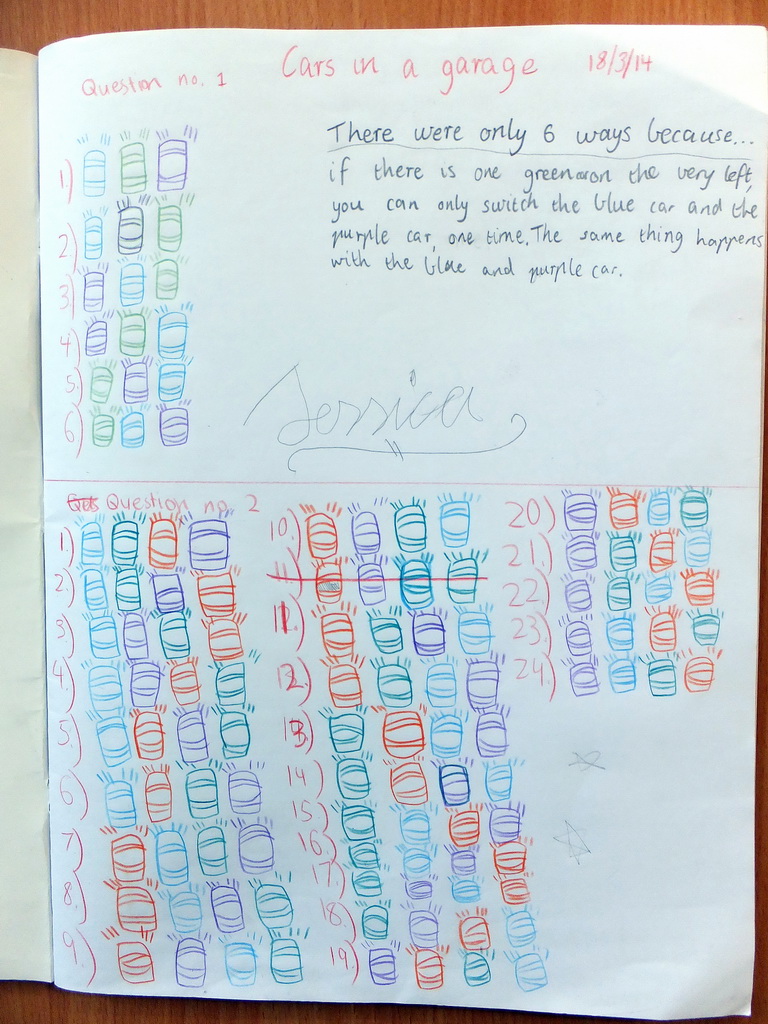 Cars in a garage 18/3/14
Question no. 1
There were only 6 ways because...
if there is one green on the very left,
you can only switch the blue car and the
purple car, one time. The same thing happens
with the blue and purple car.
1)
2)
3)
4)
5)
6)
Jessica
Question no. 2
1)
2)
3)
4)
5)
6)
7)
8)
9)
10)
11)
11)
12)
13)
14)
15)
16)
17)
18)
19)
20)
21)
22)
23)
24)